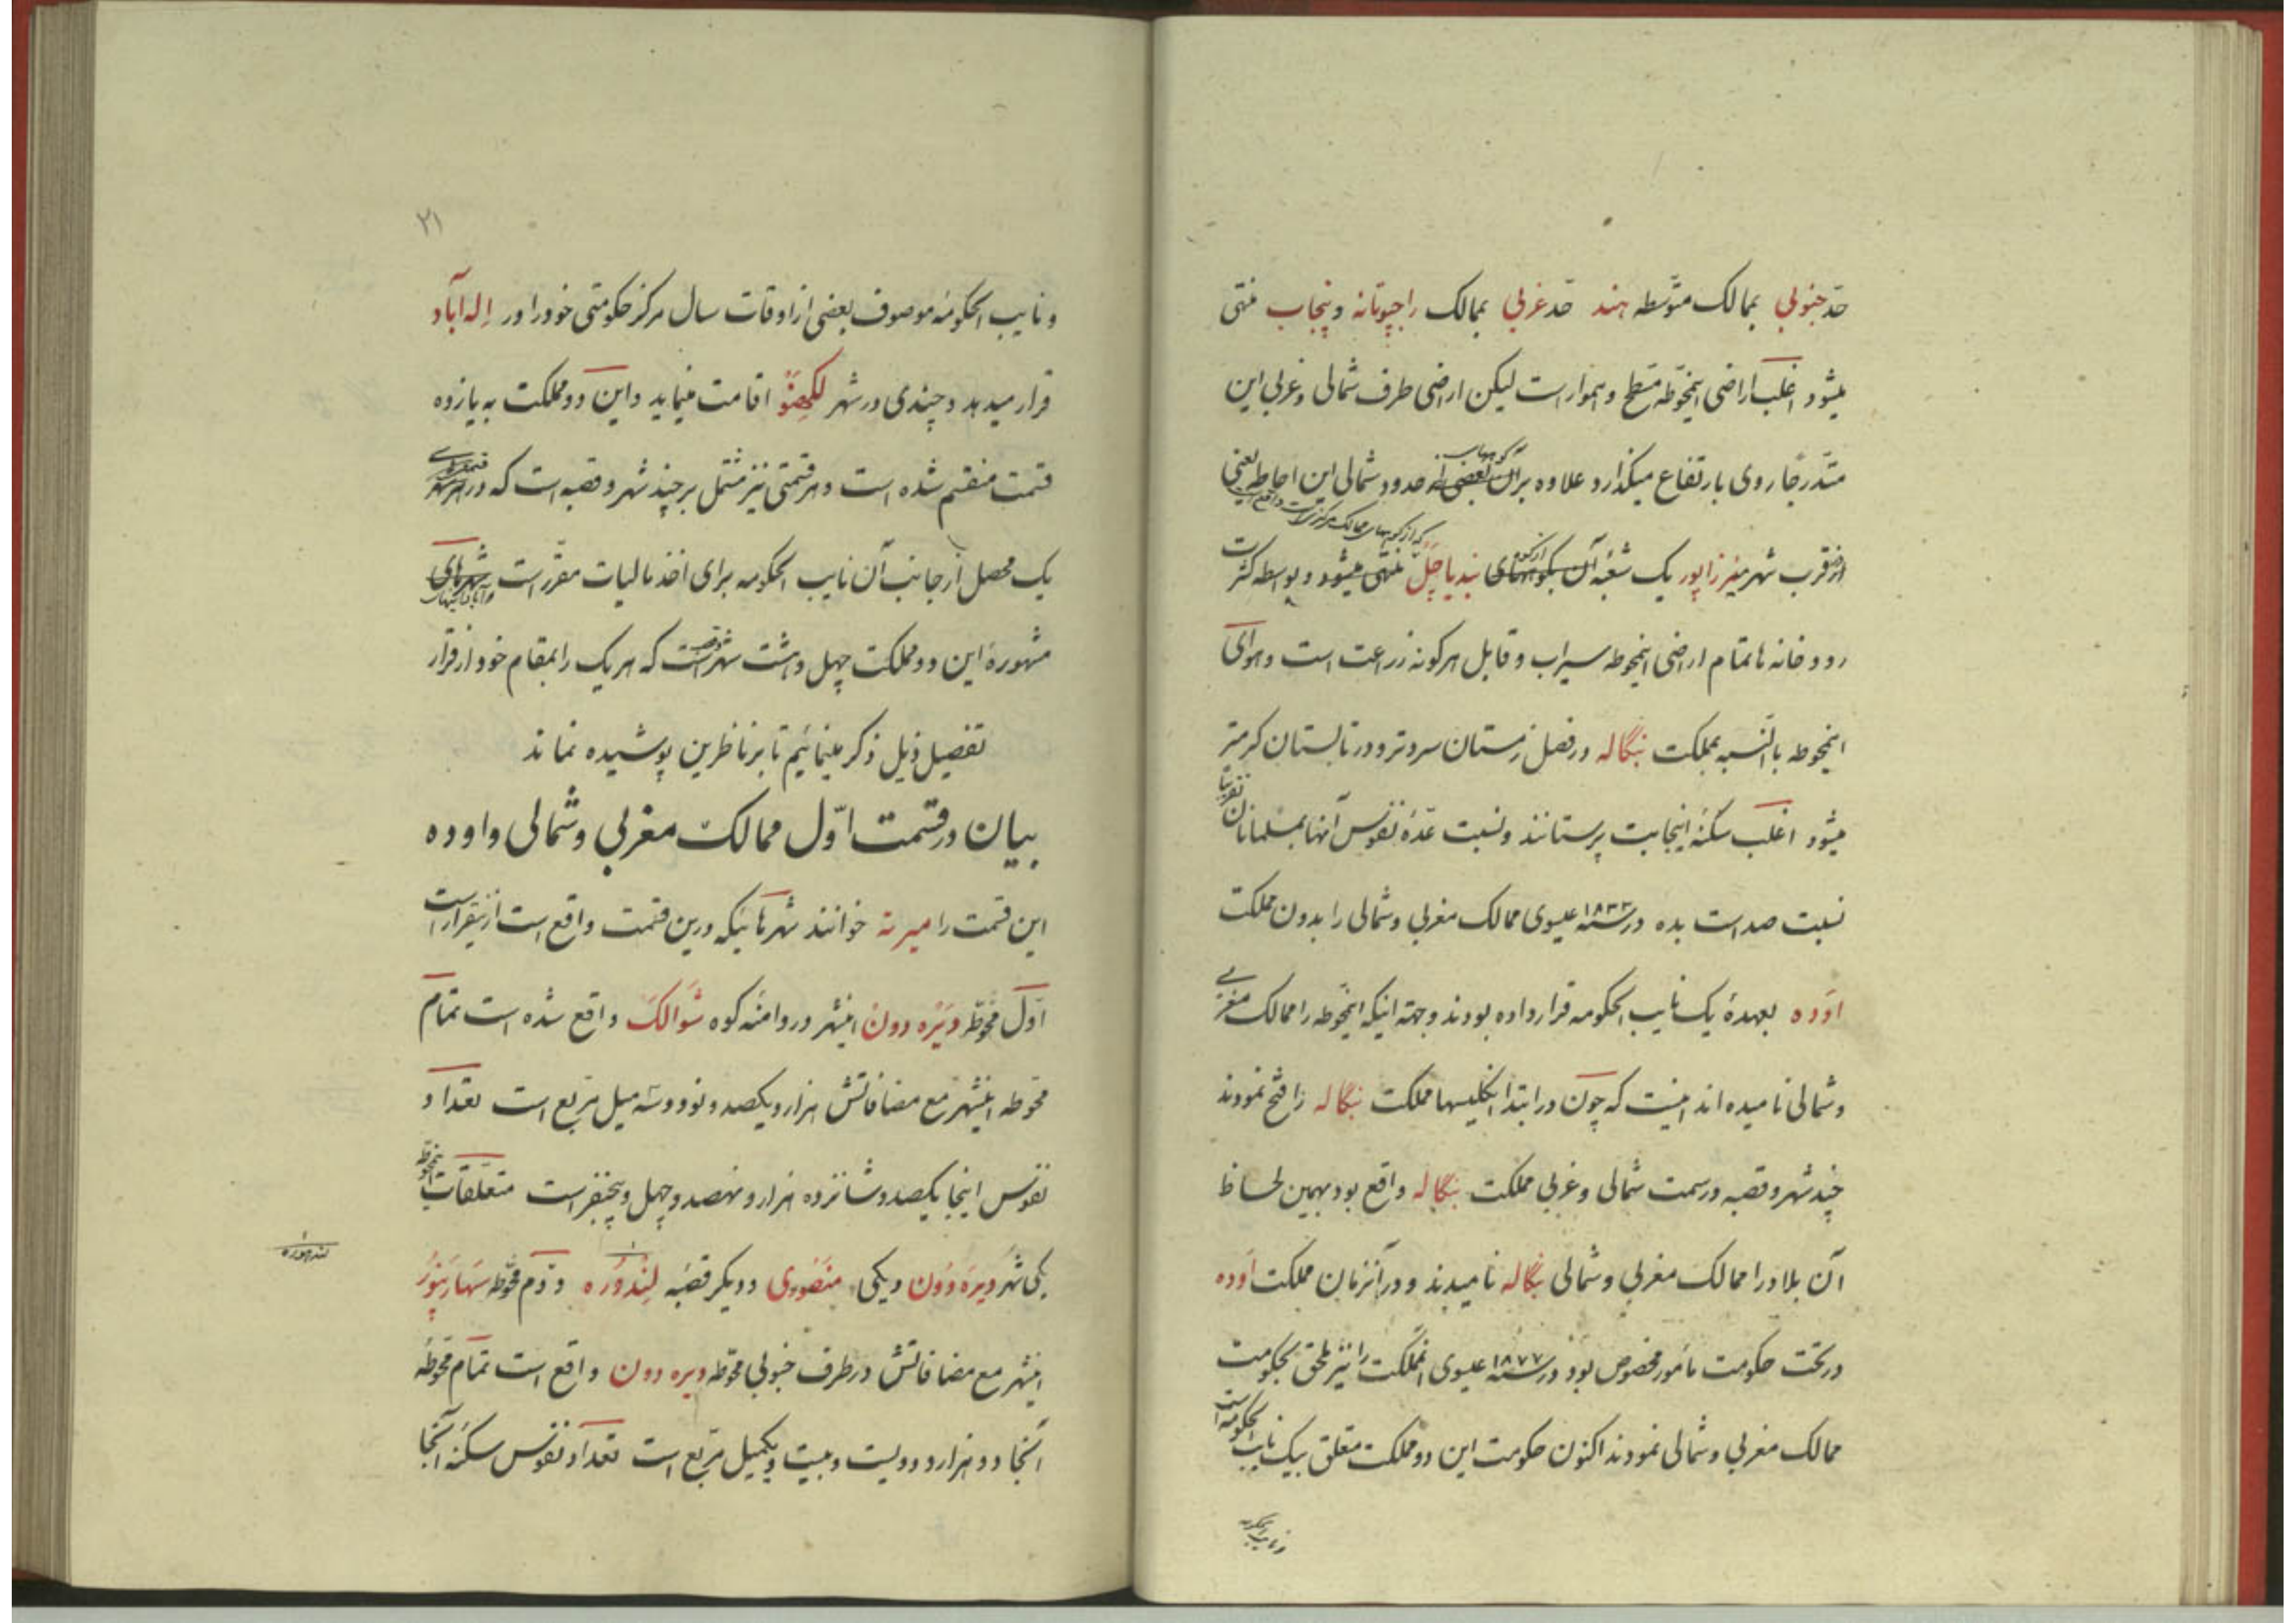 حدّ جنوبی بممالک متوّسطه هند حد غربی بممالک راجپوتانه و پنجاب منتهی
میشود اغلب اراضی اینمحوّطه مسطح و هموار است لیکن اراضی طرف شمالی و غربی این
متدّرجًا روی بارتفاع میگذارد علاوه بر آن بعضی از حدود شمالی این احاطه یعنی
کوههای
که از کوههای ممالک مرکزی است واقع است
از قرب شهر میرزاپور یک شعبه آن بکوههای بندیاچَل منتهی میشود و بواسطه کثرت
رودخانه ها تمام اراضی اینمحوطه سیراب و قابل هرگونه زراعت است و هوای
اینمحوطه بالنّسبه بمملکت بنگاله در فصل زمستان سردتر و در تابستان گرمتر
میشود اغلب سکنهٔ اینجا بت پرستانند و نسبت عدّهٔ نفوس آنها بمسلمانان تقریبًا
نسبت صد است بده در سنه ۱۸۳۳ عیسوی ممالک مغربی و شمالی را بدون مملکت
اوَده بعهدهٔ یک نایب الحکومه قرار داده بودند و جهته اینکه اینمحّوطه را ممالک مغربی
و شمالی نامیده اند اینست که چون در ابتدا انگلیسها مملکت بنگاله را فتح نمودند
چند شهر و قصبه در سمت شمالی و غربی مملکت بنگاله واقع بود بهمین لحاظ
آن بلاد را ممالک مغربی و شمالی بنگاله نامیدند و در آنزمان مملکت اَوده
در تحت حکومت مأمور مخصوص بود در سنه ۱۸۷۷ عیسوی انمملکت را نیز ملحق بحکومت
ممالک مغربی و شمالی نمودند اکنون حکومت این دو مملکت متعلق بیک نایب الحکومه است
و نایب الحکومه
۲۱
و نایب الحکومهٔ موصوف بعضی از اوقات سال مرکز حکومتی خود را در اِله آباد
قرار میدهد و چندی در شهر لکهنَوْ اقامت مینماید و این دو مملکت به یازده
قسمت منقسم شده است و هر قسمتی نیز مشتمل بر چند شهر و قصبه است که در هر قسمتی
یک محصل از جانب آن نایب الحکومه برای اخذ مالیات مقرّر است شهرهای
مشهورهٔ این دو مملکت چهل و هشت شهر است که هر یک را بمقام خود از قرار
تفصیل ذیل ذکر مینمائیم تا بر ناظرین پوشیده نماند
بیان در قسمت اوّل ممالک مغربی و شمالی و اوده
این قسمت را میرته خوانند شهرهائیکه درین قسمت واقع است ازینقرار است
اوّل محوّطه دَیْره دونْ اینشهر در دامنهٔ کوه سَوَالک واقع شده است تمام
محوّطه اینشهر مع مضافاتش هزار و یکصد و نود و سه میل مربع است تعداد
نفوس اینجا یکصد و شانزده هزار و نهصد و چهل و پنجنفر است متعلّقات اینمحوّطه
یکی شهر دیره دوُن و یکی منصوری و دیگر قصبه لِندَوْره و دوّم محوّطه سَهَارَنپوُر
لندهوره
اینشهر مع مضافاتش در طرف جنوبی محوّطه دیره دون واقع است تمام محوّطهٔ
آنجا دو هزار و دویست و بیست و یکمیل مربّع است تعداد نفوس سکنهٔ آنجا